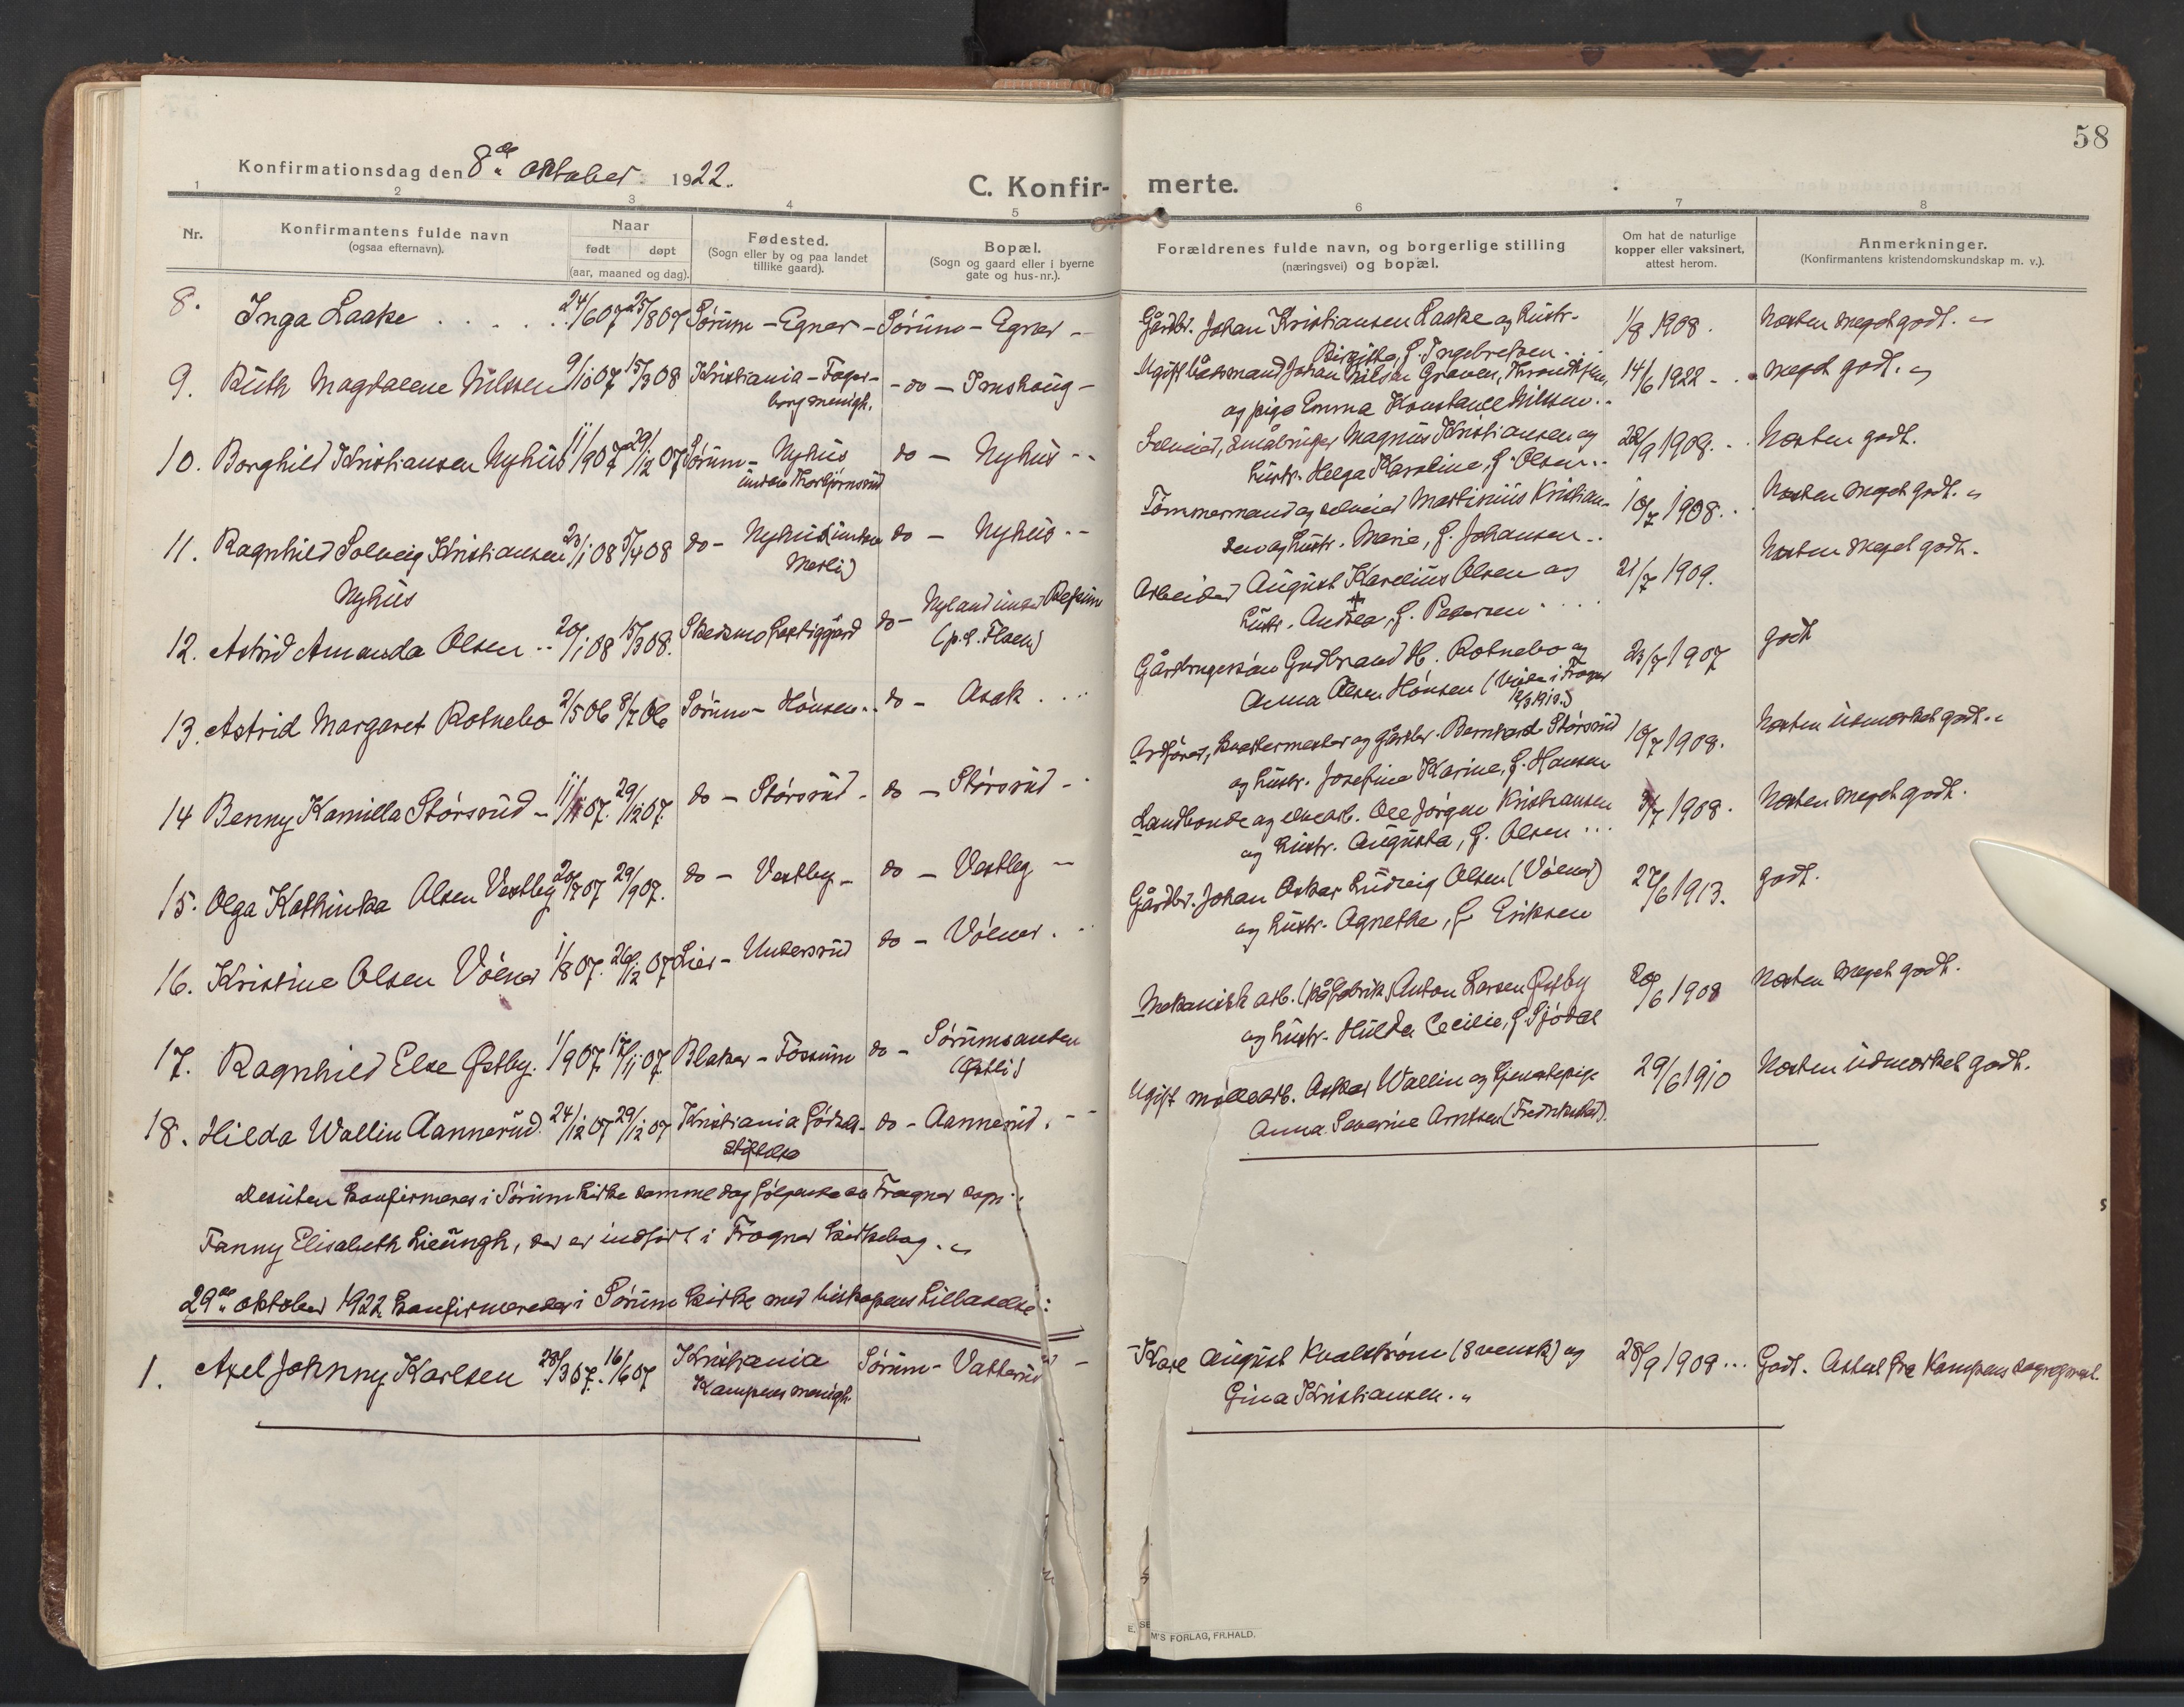 58
Konfirmationsdag den 8de oktober 1922.
C. Konfir- merte.
1 2 3 4 5 6 7 8
Nr.
Konfirmantens fulde navn
(ogsaa efternavn).
Naar
født døpt
(aar, maaned og dag).
Fødested.
(Sogn eller by og paa landet
tillike gaard).
Bopæl.
(Sogn og gaard eller i byerne
gate og hus-nr.).
Forældrenes fulde navn, og borgerlige stilling
(næringsvei) og bopæl.
Om hat de naturlige
kopper eller vaksinert,
attest herom.
Anmerkninger.
(Konfirmantens kristendomskundskap m. v.).
8. Inga Laake 24/6 07 25/8 07 Sørum - Egner - Sørum - Egner - Gårdbr. Johan Kristiansen Laake og hustr. 1/8 1908. Næsten meget godt.
Birgitte, f. Ingebretsen.
9. Ruth Magdalene Nilsen 9/10 07 15/3 08 Kristiania - Fager- - do - Imshaug - Ugift båtsmand Johan Nilsen Graven, Throndhjem, 14/6 1922 - meget godt.
borg menigh. og pige Emma Konstance Nilsen.
10. Borghild Kristiansen Nyhus 11/9 07 29/12 07 Sørum - Nyhus do - Nyhus - Selveier, småbruger Magnus Kristiansen og 28/9 1908. Næsten godt.
under Thorbjørnsrud hustr. Helga Karoline, f. Olsen.
11. Ragnhild Solveig Kristiansen 23/1 08 5/4 08 do - Nyhus (under do - Nyhus - Tømmermand og selveier Martinius Kristian- 10/7 1908. Næsten meget godt.
Nyhus Merli) sen og hustr. Marie, f. Johansen.
12. Astrid Amanda Olsen 20/1 08 15/3 08. Skedsmo fattiggård do - Nyland under Refsum Arbeider August Karelius Olsen og 21/7 1909. Næsten meget godt.
(p.t. Flaen) hustr. Andrea, f. Pedersen
13. Astrid Margaret Rotnebo 2/5 06 8/7 06 Sørum - Hønsen do - Asak Gårdbrugersøn Gudbrand H. Rotnebo og 23/7 1907 godt
Anna Olsen Hønsen (viede i Frogner
14 Benny Kamilla Størsrud - 11/11 07. 29/12 07. do - Størsrud - do - Størsrud - Ordfører, kvartermester og gårdbr. Bernhard Størsrud 10/7 1908. Næsten udmerket godt.
og hustr. Josefine Karine, f. Hansen
15. Olga Kathinka Olsen Vestby 20/7 07 29/9 07. do - Vestby - do - Vestby - Landhandler og elvearb. Ole Jørgen Kristiansen 3/7 1908. Næsten meget godt.
og hustr. Augusta, f. Olsen
16. Kristine Olsen Vølner 1/8 07. 26/12 07 Lier - Undersrud do - Vølner. Gårdbr. Johan Oskar Ludvig Olsen (Vølner) 27/6 1913. godt.
og hustr. Agnethe, f. Eriksen
17. Ragnhild Else Østby. 1/9 07. 17/11 07 Blaker - Fossum do - Sørumsanden Mekanisk arb. (på fabrik) Anton Larsen Østby 20/6 1908 Næsten meget godt.
(Østli) og hustr. Hulda Cecilie, f. Sjödal
18. Hilda Wallin Aannerud. 24/12 07 29/12 07 Kristiania Fødsels- do - Aannerud. Ugift møllearb. Oskar Wallin og tjenestepige 29/6 1910 Næsten udmerket godt.
stiftelse Anna Severine Arntsen (Fredrikshald).
Desuten konfirmeres i Sørum kirke samme dag følgende av Frogner sogn:
Fanny Elisabeth Lieungh, der er indført i Frogner kirkebog.
29de oktober 1922 konfirmeredes i Sørum kirke med biskopens tilladelse:
1. Axel Johnny Karlsen 28/3 07. 16/6 07 Kristiania Sørum - Vatterud - Karl August Kvalstrøm (svensk) og 28/9 1908 ... Godt. Attest fra Kampens sogneprest.
Kampens menigh. Gina Kristiansen.
M'S FORLAG, FR.HALD.